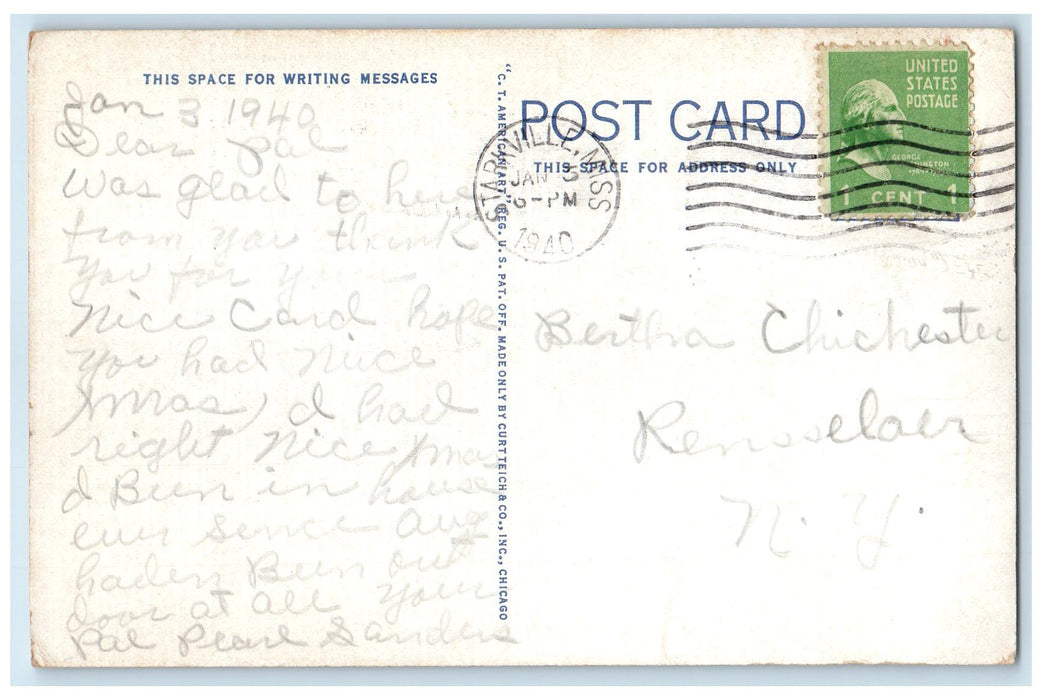 THIS SPACE FOR WRITING MESSAGES
Jan 3 1940
Dear pal
Was glad to hear
from you think
you for your
Nice Card hope
you had Nice
Xmas, I had
right Nice Xmas
I Been in house
ever sence Aug
haden Been out
door at all your
Pal Pearl Sanders
"C. T. AMERICAN ART" REG. U. S. PAT. OFF. MADE ONLY BY CURT TEICH & CO., INC., CHICAGO
POST CARD
THIS SPACE FOR ADDRESS ONLY
STARKVILLE, MISS
JAN 3
6-PM
1940
UNITED
STATES
POSTAGE
GEORGE
1 CENT 1
Bertha Chichester
Rensselaer
N. Y.